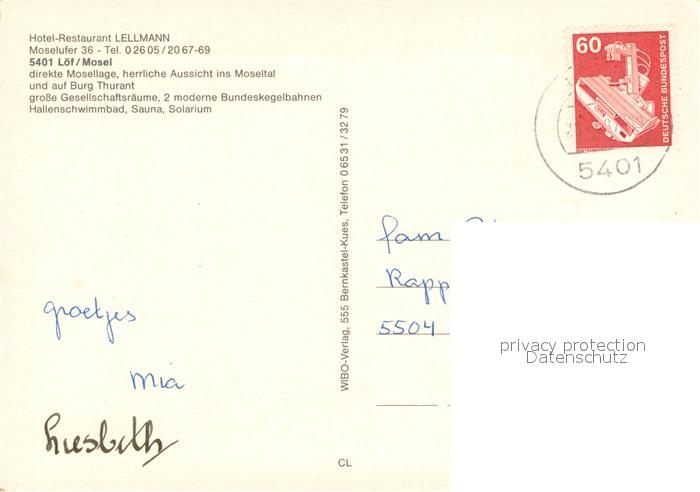 Hotel-Restaurant LELLMANN
Moselufer 36 - Tel. 0 26 05 / 20 67-69
5401 Löf/Mosel
direkte Mosellage, herrliche Aussicht ins Moseltal
und auf Burg Thurant
große Gesellschaftsräume, 2 moderne Bundeskegelbahnen
Hallenschwimmbad, Sauna, Solarium
60
DEUTSCHE BUNDESPOST
5401
WIBO-Verlag, 555 Bernkastel-Kues, Telefon 0 65 31 / 32 79
fam
Rapp
5504
privacy protection
Datenschutz
groetjes
Mia
Liesbeth
CL